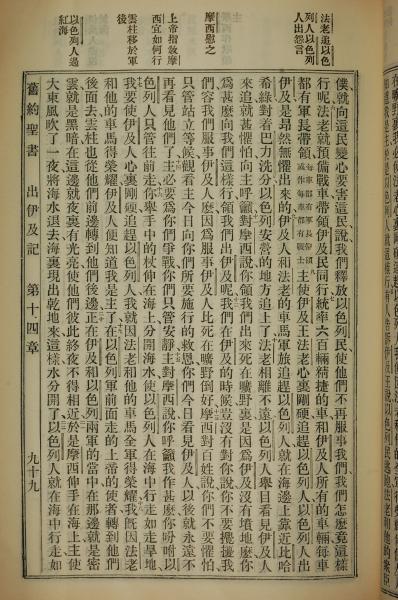 法老追以色
列人以色列
人出怨言
摩西慰之
上帝指敎摩
西宜如何行
雲柱移於軍
後
以色列人過
紅海
僕就向這民變心要害這民說我們釋放以色列民使他們不再服事我們我們怎麼竟這樣
行呢法老就預備戰車帶領伊及民同行統率六百輛精捷的車和伊及人所有的車輛每車
都有軍長帶領主使伊及王法老心裏剛硬追趕以色列人以色列人出
伊及是昂然無懼出來的伊及人和法老的車馬軍旅追趕以色列人就在海邊上靠近比哈
希綠對着巴力洗分以色列安營的地方追上了法老相離不遠以色列人舉目看見伊及人
來追就甚懼怕向主呼籲對摩西說你領我們出來死在曠野裏是因爲伊及沒有墳地麼你
爲甚麼向我們這樣行領我們出伊及呢我們在伊及的時候豈沒有對你說你不要攪擾我
們容我們服事伊及人麼因爲服事伊及人比死在曠野倒好摩西對百姓說你們不要懼怕
只管站立等候觀看主今日向你們所要施行的救恩你們今日看見伊及人以後就永遠不
再看見他們了主必要爲你們爭戰你們只管安靜主對摩西說你呼籲我作甚麼你吩咐以
色列人只管往前走你舉手中的杖伸在海上分開海水使以色列人在海中行走如走旱地
我要使伊及人心裏剛硬追趕以色列人我就因法老和他的車馬全軍得榮耀我旣因法老
和他的車馬得榮耀伊及人便知道我是主了在以色列軍前面走的上帝的使者轉到他們
後面去雲柱也從他們前邊轉到他們後邊正在伊及和以色列兩軍的當中在那邊就是密
雲就是黑暗在這邊就夜裏有光亮使他們彼此終夜不得相近於是摩西伸手在海上主使
大東風吹了一夜將海水退去海裏現出乾地來這樣水分開了以色列人就在海中行走如
舊約聖書 出伊及記 第十四章 九十九